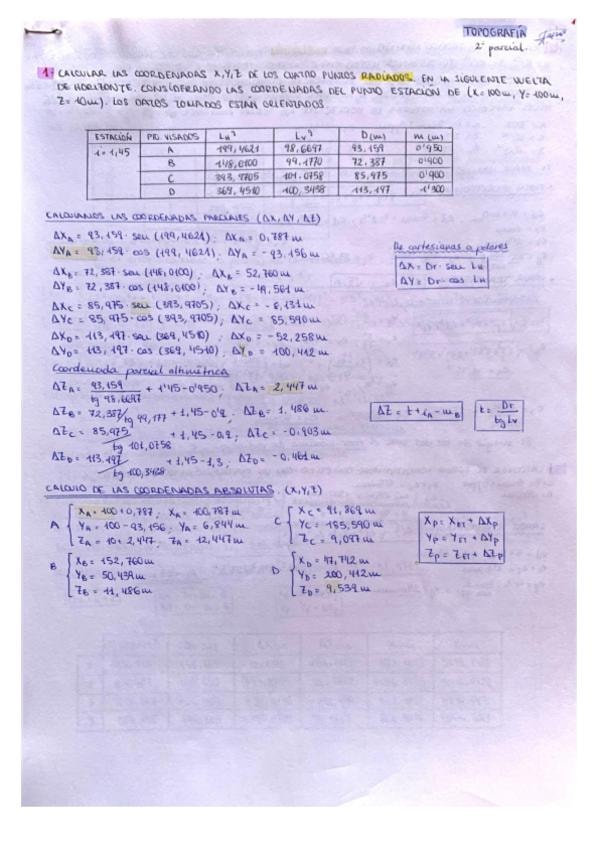 TOPOGRAFÍA
2º parcial.
1. CALCULAR LAS COORDENADAS X,Y,Z DE LOS CUATRO PUNTOS RADIADOS, EN LA SIGUIENTE VUELTA
DE HORIZONTE. CONSIDERANDO LAS COORDENADAS DEL PUNTO ESTACIÓN DE (X=100m, Y=100m,
Z=10m). LOS DATOS TOMADOS ESTÁN ORIENTADOS.
ESTACIÓN PTO. VISADOS LHᵍ LVᵍ D(m) m(m)
i=1,45 A 199,4621 98,6697 93,159 0'950
B 148,0100 99,1770 72,387 0'900
C 393,9705 101,0758 85,975 0'900
D 369,4510 100,3458 113,197 1'300
CALCULAMOS LAS COORDENADAS PARCIALES (ΔX, ΔY, ΔZ)
ΔXA = 93,159 · sen (199,4621); ΔXA = 0,787 m
ΔYA = 93,159 · cos (199,4621); ΔYA = -93,156 m
De cartesianas a polares
ΔXB = 72,387 · sen (148,0100); ΔXB = 52,760 m
ΔYB = 72,387 · cos (148,0100); ΔYB = -49,561 m
ΔX = Dr · sen LH
ΔY = Dr · cos LH
ΔXC = 85,975 · sen (393,9705); ΔXC = -8,131 m
ΔYC = 85,975 · cos (393,9705); ΔYC = 85,590 m
ΔXD = 113,197 · sen (369,4510); ΔXD = -52,258 m
ΔYD = 113,197 · cos (369,4510); ΔYD = 100,412 m
Coordenada parcial altimétrica
ΔZA = 93,159 / tg 98,6697 + 1'45-0'950; ΔZA = 2,447 m
ΔZB = 72,387/tg 99,177 + 1,45-0'9; ΔZB = 1,486 m
ΔZ = t + iA - mB
t = Dr / tg LV
ΔZC = 85,975 / tg 101,0758 + 1,45-0,9; ΔZC = -0,903 m
ΔZD = 113,197 / tg 100,3458 + 1,45-1,3; ΔZD = -0,461 m
CALCULO DE LAS COORDENADAS ABSOLUTAS. (X,Y,Z)
A { XA = 100+0,787; XA = 100,787 m
YA = 100-93,156; YA = 6,844 m
ZA = 10+2,447; ZA = 12,447 m
C { XC = 91,869 m
YC = 185,590 m
ZC = 9,097 m
XP = XET + ΔXP
YP = YET + ΔYP
ZP = ZET + ΔZP
B { XB = 152,760 m
YB = 50,439 m
ZB = 11,486 m
D { XD = 47,742 m
YD = 200,412 m
ZD = 9,539 m